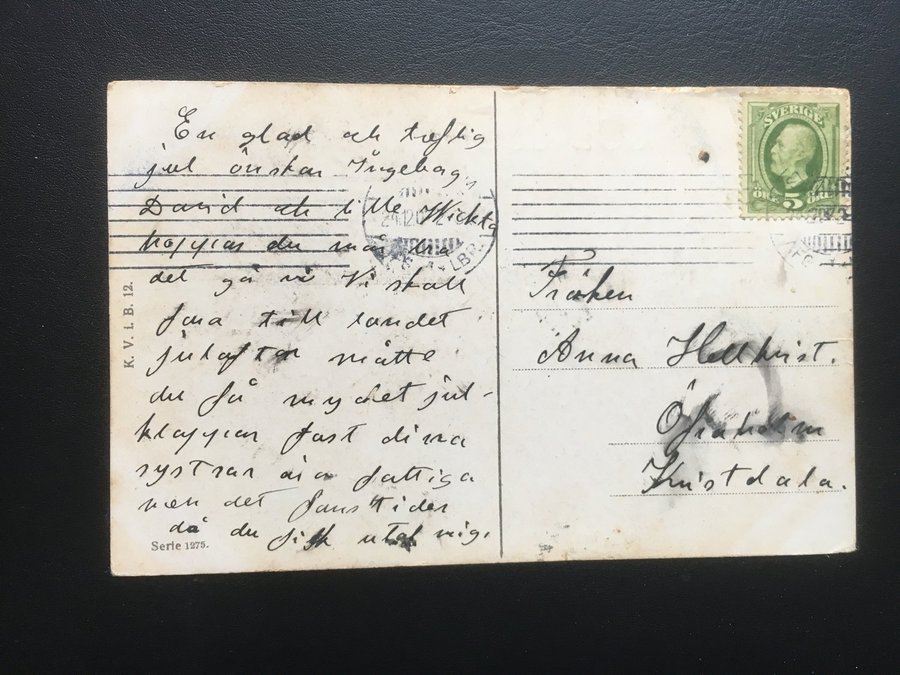 En glad och treflig
jul önskar Ingeborg,
David och lille Wickto
hoppas du mår bra
det gå vi Vi skall
fara till landet
julafton måtte
du få mycket jul-
klappar fast dina
systrar äro fattiga
men det fans tider
då du fick utaf mig.
K. V. i. B. 12.
Serie 1275.
SVERIGE
5 ÖRE
Fröken
Anna Hellkvist.
Kristdala.